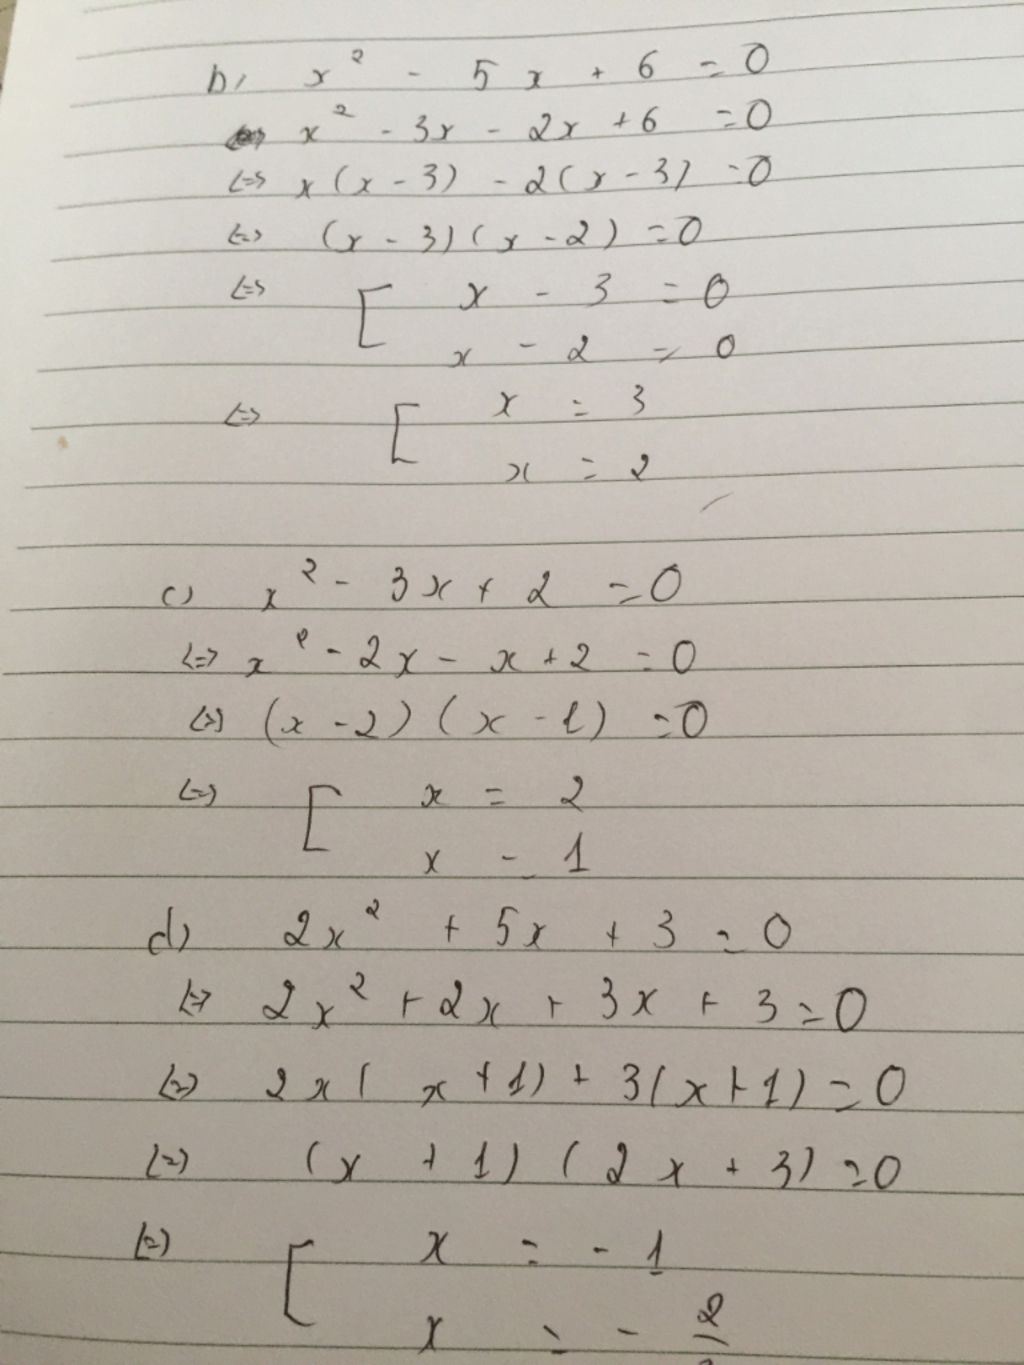 b, x² - 5x + 6 = 0
x² - 3x - 2x + 6 = 0
<=> x(x - 3) - 2(x - 3) = 0
<=> (x - 3)(x - 2) = 0
<=> [ x - 3 = 0
x - 2 = 0
<=> [ x = 3
x = 2
c) x² - 3x + 2 = 0
<=> x² - 2x - x + 2 = 0
<=> (x - 2)(x - 1) = 0
<=> [ x = 2
x = 1
d) 2x² + 5x + 3 = 0
<=> 2x² + 2x + 3x + 3 = 0
<=> 2x(x + 1) + 3(x + 1) = 0
<=> (x + 1)(2x + 3) = 0
<=> [ x = -1
x = - 2